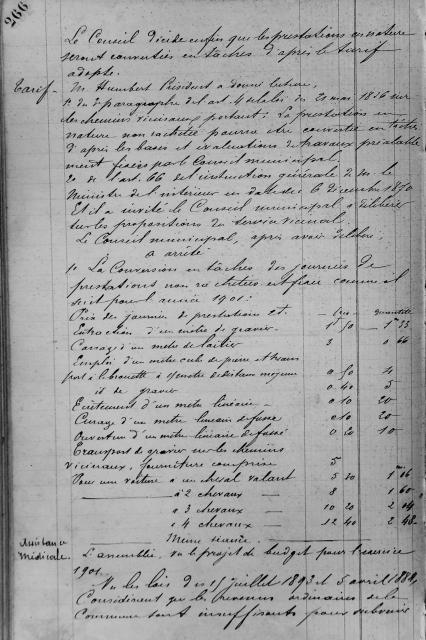 266
Le Conseil décide enfin que les prestations en nature
seront converties en tâches d'après le tarif
adopté.
Tarif - M. Humbert Président a donné lecture,
1º du 2e paragraphe de l'art. 4 de la loi du 21 mai 1836 sur
les chemins vicinaux portant : La prestation en
nature non rachetée pourra être convertie en tâches
d'après les bases et évaluations de travaux préalable
ment fixées par le Conseil municipal,
2º de l'art. 66 de l'instruction générale de M. le
Ministre de l'intérieur en date du 6 décembre 1870
Et il a invité le Conseil municipal à délibérer
sur les propositions du service vicinal.
Le Conseil municipal, après avoir délibéré,
a arrêté
1º La Conversion en tâches des journées de
prestations non rachetées est fixée comme il
suit pour l'année 1901 :
Prix des journées de prestations et : quantité
Extraction d'un mètre de gravier 1 50 1 33
Cassage d'un mètre de laitier 3 0 66
Emploi d'un mètre cube de pierre et trans
port à la brouette à mètre de distance moyenne 0 50 4
it de gravier 0 40 5
d'un mètre linéaire - 0 10 20
Curage d'un mètre linéaire de fossé 0 10 20
Ouverture d'un mètre linéaire de fossé 0 20 10
Transport de gravier sur les chemins
vicinaux, fourniture comprise 5
Pour une voiture à un cheval valant 5 30 1 06
à 2 chevaux - 8 1 60
à 3 chevaux - 10 20 2 04
à 4 chevaux - 12 40 2 48
Même séance.
Assistance
Médicale.
L'assemblée, vu le projet de budget pour l'exercice
1901
Vu les lois des 15 juillet 1893 et 5 avril 1884,
Considérant que les revenus ordinaires de la
Commune sont insuffisants pour subvenir